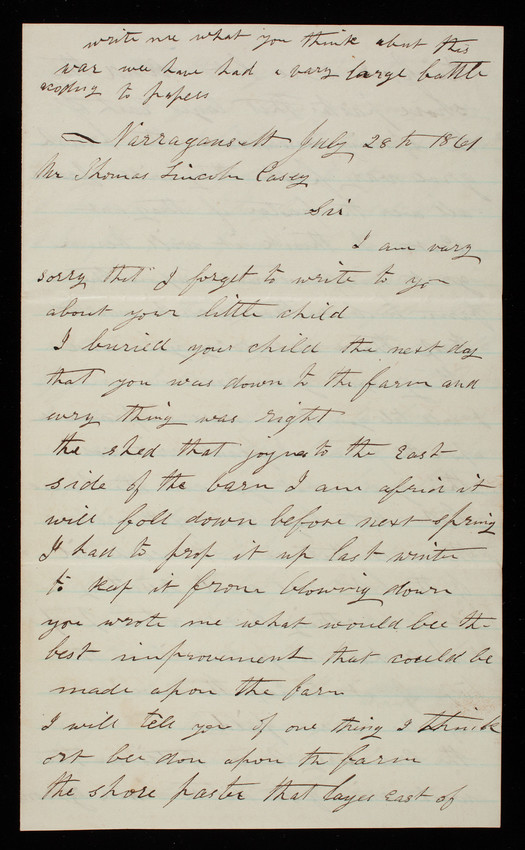 write me what you think about this
war wee have had a vary large battle
acoding to papers
Narragansett July 28th 1861
Mr Thomas Lincoln Casey
Sir
I am vary
sorry that I forget to write to you
about your little child
I buried your child the next day
that you was down to the farm and
evry thing was right
the shed that joynes to the East
side of the barn I am afraid it
will foll down before next spring
I had to prop it up last winter
to keap it frome blowing down
you wrote me what would bee the
best improvement that could be
made apon the farm
I will tell you of one thing I think
ort bee don apon th farm
the shore paster that layes East of